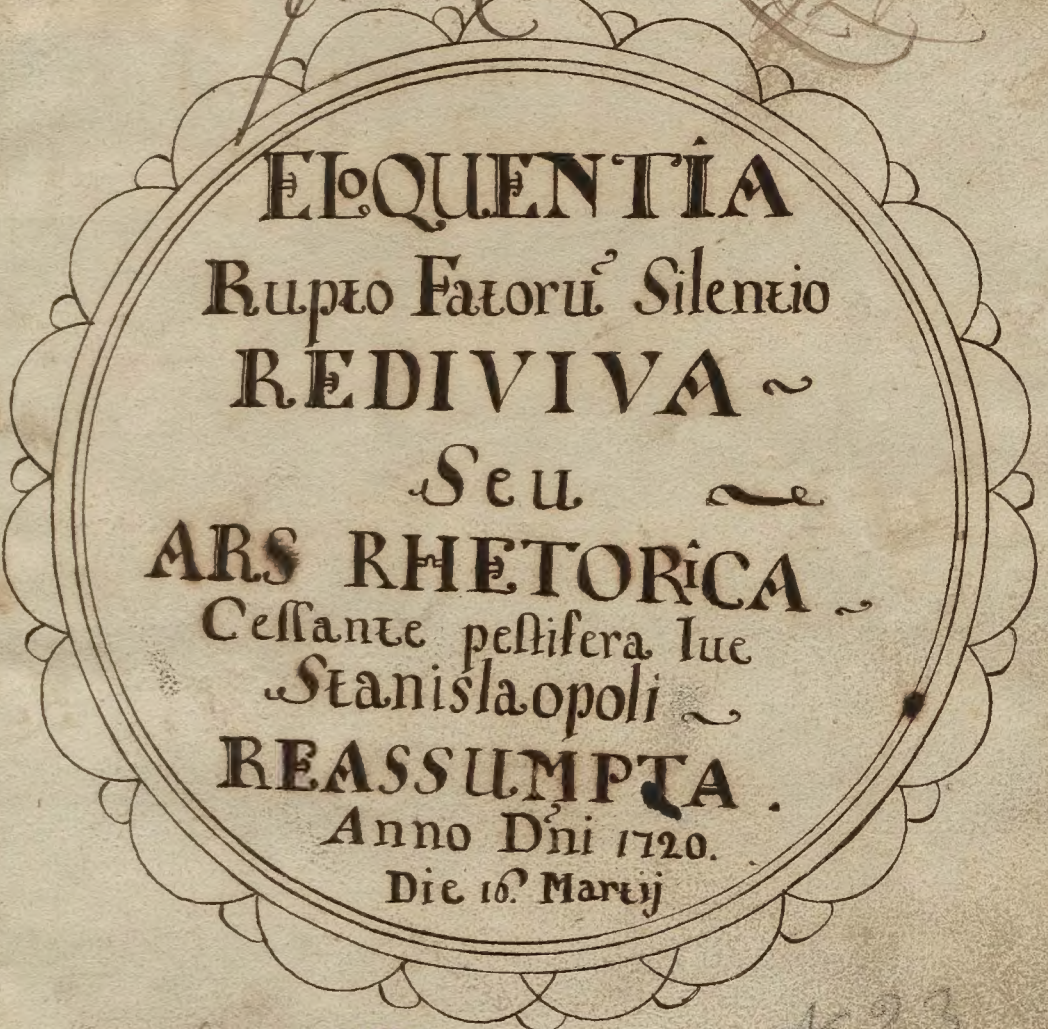 ELOQUENTIA
Rupto Fatorũ Silentio
REDIVIVA ~
Seu
ARS RHETORICA
Ceſſante peſtifera lue
Stanislaopoli
REASSUMPTA.
Anno Dñi 1720.
Die 16. Martij